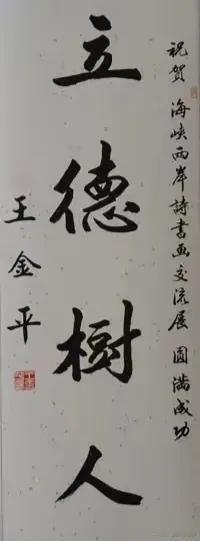 祝贺 海峡两岸詩書画交流展 圆满成功
立德樹人
王金平